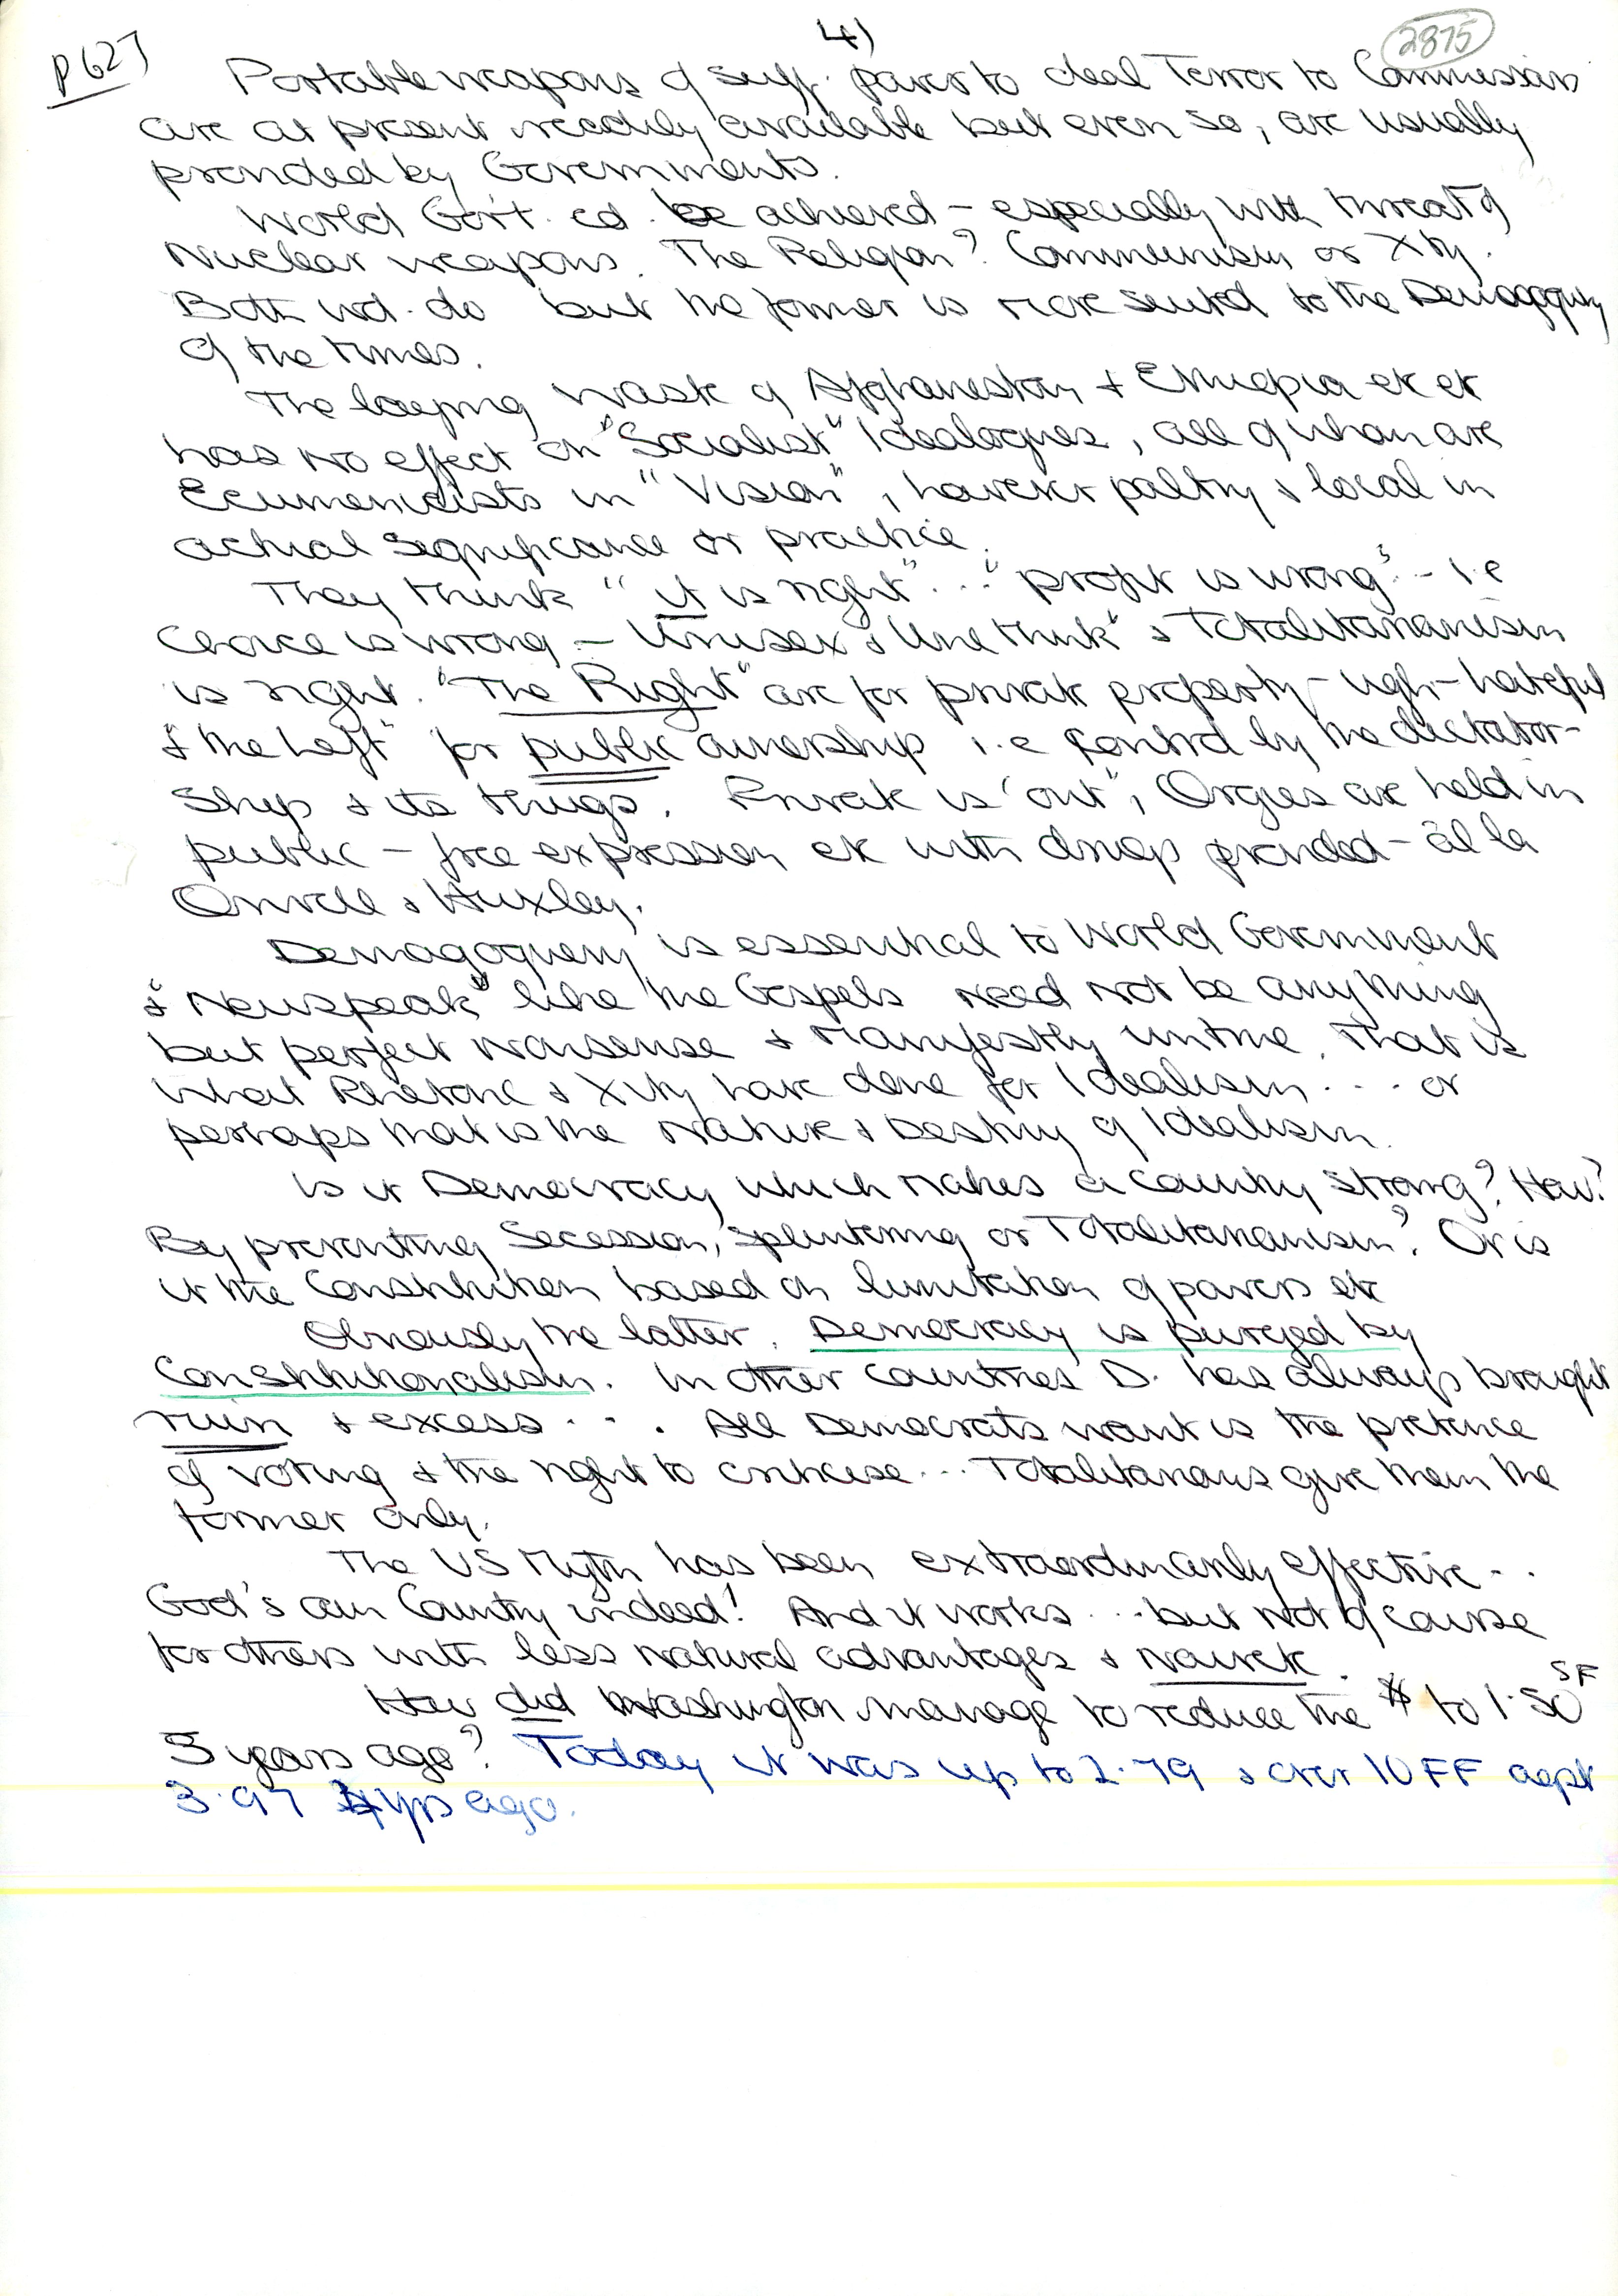 4)
2875
P 627
Portable weapons of suff. power to deal Terror to Commissars
are at present readily available but even so, are usually
provided by Governments.
World Gov't. cd. be achieved – especially with threat of
Nuclear weapons. The Religion? Communism or Xty.
Both wd. do but the former is more suited to the Demagoguery
of the times.
The waste of Afghanistan & Ethiopia etc etc
has no effect on "Socialist" Idealogues, all of whom are
Ecumenicists in "Vision", however paltry & local in
actual significance or practice.
They think "it is right". . "profit is wrong" - i.e
Choice is wrong – Unisex & Une think" & Totalitarianism
is right. "The Right" are for private property – ugh – hateful
& "the Left" for public ownership i.e control by the dictator-
ship & its thugs. Private is "out", Orgies are held in
public – free expression etc with drugs provided – àl la
Orwell & Huxley.
Demagoguery is essential to World Government
& "Newspeak" like the Gospels need not be anything
but perfect nonsense & manifestly untrue. That is
what Rhetoric & Xity have done for Idealism . . . or
perhaps that is the Nature & Destiny of Idealism.
Is it Democracy which makes a country strong? How?
By preventing Secession, splintering or Totalitarianism? Or is
it the Constitution based on limitation of powers etc
Obviously the latter. Democracy is purged by
Constitutionalism. In other countries D. has always brought
ruin & excess . . . All Democrats want is the pretence
of voting & the right to criticise... Totalitarians give them the
former only.
The US Myth has been extraordinarily effective . .
God's own Country indeed! And it works ... but not of course
for others with less natural advantages & naivete.
How did Washington manage to reduce the $ to 1.50 SF
5 years ago? Today it was up to 2.79 & over 10 FF agst
3.97 4 yrs ago.